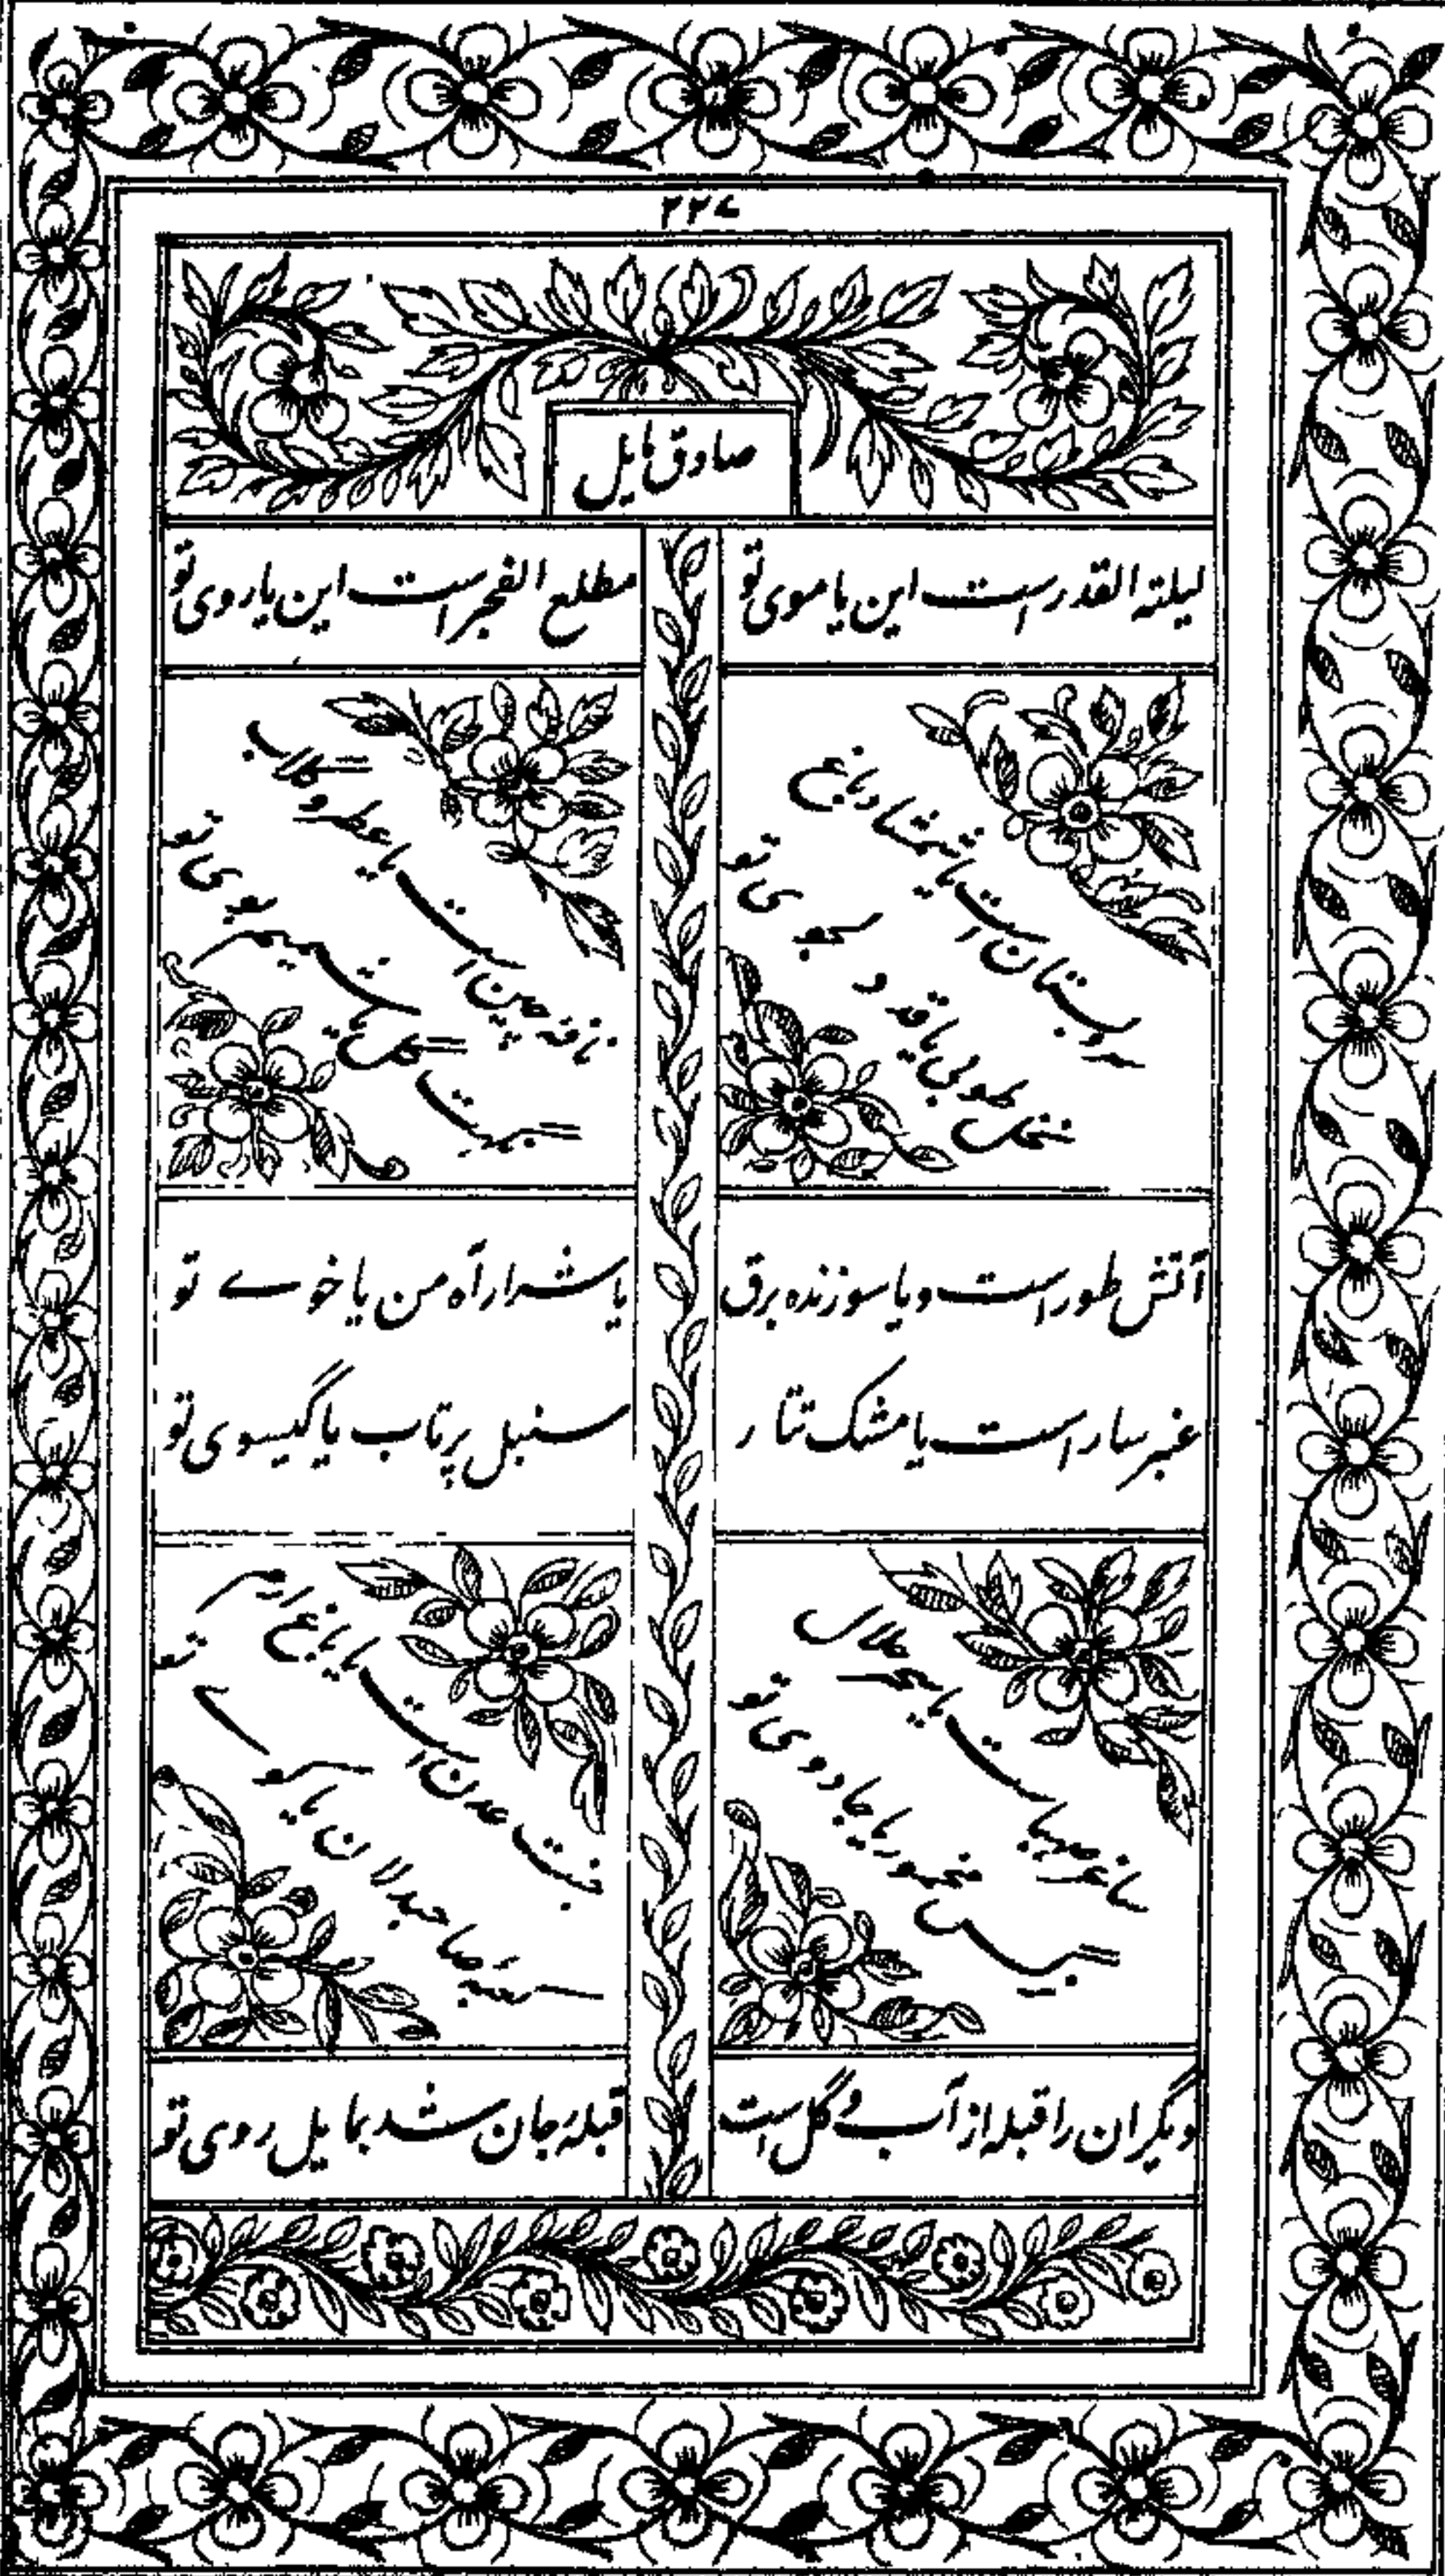 ۲۲۷
صادق مایل
لیلته القدر است این یا موی تو
مطلع الفجر است این یا روی تو
سروبستان است یا شمشاد باغ
نخل طوبی یا قد د لجوی تو
نافه چین است یا عطر و گلاب
نکهت گل یا نسیم بوی تو
آتش طور است و یا سوزنده برق
یا شرار آه من یا خوے تو
عنبر سار است یا مشک تتار
سنبل پرتاب یا گیسوی تو
ساغر صهباست یا سحر حلال
نرگس مخمور یا جادوی تو
جنت عدن است یا باغ ارم
کعبه صاحبدلان یا کوے تو
دیگران را قبله از آب و گل است
قبلۂ جان شد بمایل روی تو